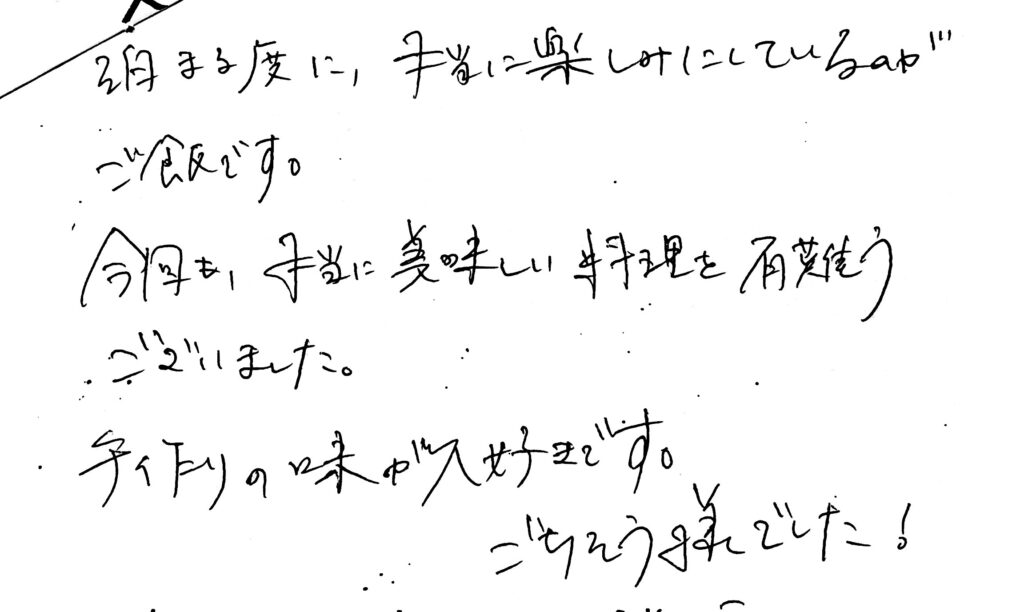 泊まる度に、本当に楽しみにしているのが
ご飯です。
今回も、本当に美味しい料理を有難う
ございました。
手作りの味が大好きです。
ごちそう様でした!